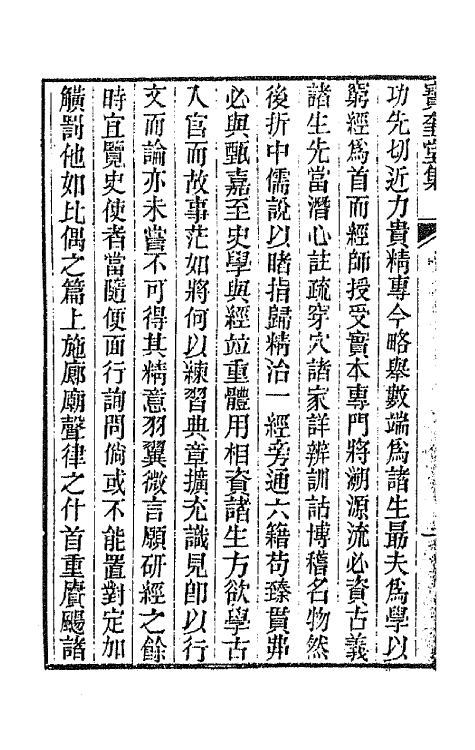 寶奎堂集
功先切近力貴精專今略舉數端爲諸生勗夫爲學以
窮經爲首而經師授受實本專門將溯源流必資古義
諸生先當潛心註疏穿穴諸家詳辨訓詁博稽名物然
後折中儒說以睹指歸精治一經旁通六籍苟臻貫弗
必與甄嘉至史學與經竝重體用相資諸生方欲學古
入官而故事茫如將何以練習典章擴充識見卽以行
文而論亦未嘗不可得其精意羽翼微言願研經之餘
時宜覽史使者當隨便面行詢問倘或不能置對定加
觵罰他如比偶之篇上施廊廟聲律之什首重賡颺諸